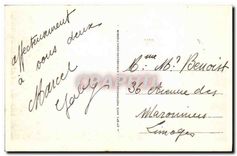 affectueusement
à vous deux
Marcel
Mme Mr Benoist
36 Avenue des
Maronniers
Limoges